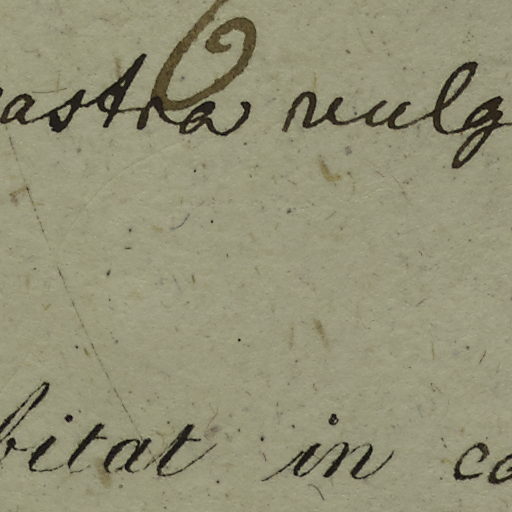 astra vulg
bitat in co